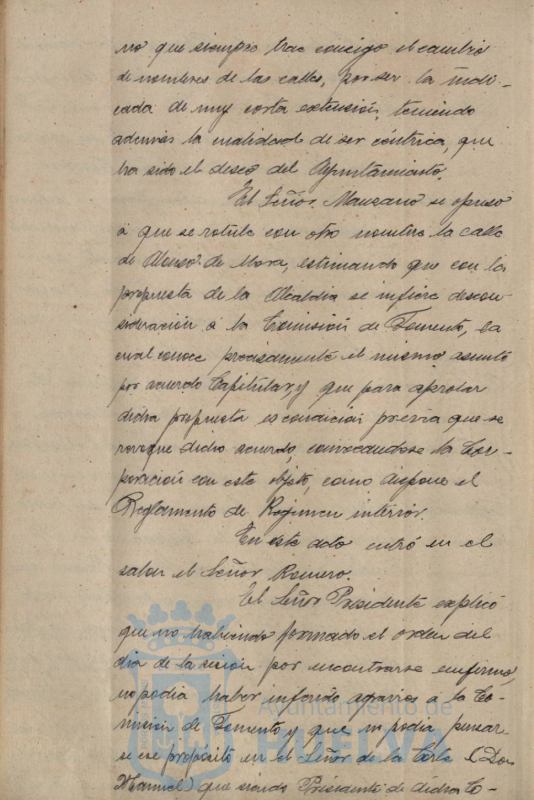 no que siempre trae consigo el cambio
de nombres de las calles, por ser la indi-
cada de muy corta extensión, teniendo
además la cualidad de ser céntrica, que
ha sido el deseo del Ayuntamiento.
El Señor Manzano se opuso
a que se rotule con otro nombre la calle
de Alonso de Mora, estimando que con la
propuesta de la Alcaldia se infiere descon-
sideración a la Comisión de Fomento, la
cual conoce precisamente el mismo asunto
por acuerdo Capitular, y que para aprobar
dicha propuesta es condición previa que se
revoque dicho acuerdo, convocandose la Cor-
poración con este objeto, como dispone el
Reglamento de Regimen interior.
En este acto entró en el
salon el Señor Romero.
El Señor Presidente explicó
que no habiendo formado el orden del
dia de la sesión por encontrarse enfermo,
no podia haber inferido agravios a la Co-
mision de Fomento y que ni podia pensar-
se ese propósito en el Señor de la Corte (Don
Manuel) que siendo Presidente de dicha Co-
Ayuntamiento de
HUELVA